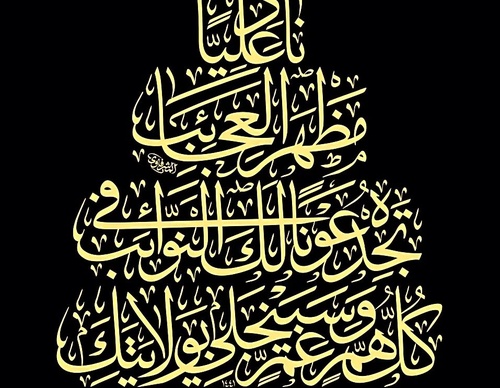 ناد عَلِيًّا
مَظْهَرَ الْعَجَائِبِ
تَجِدْهُ عَوْنًا لَكَ فِي النَّوَائِبِ
كُلُّ هَمٍّ وَغَمٍّ سَيَنْجَلِي بِوِلَايَتِكَ
١٤٤١